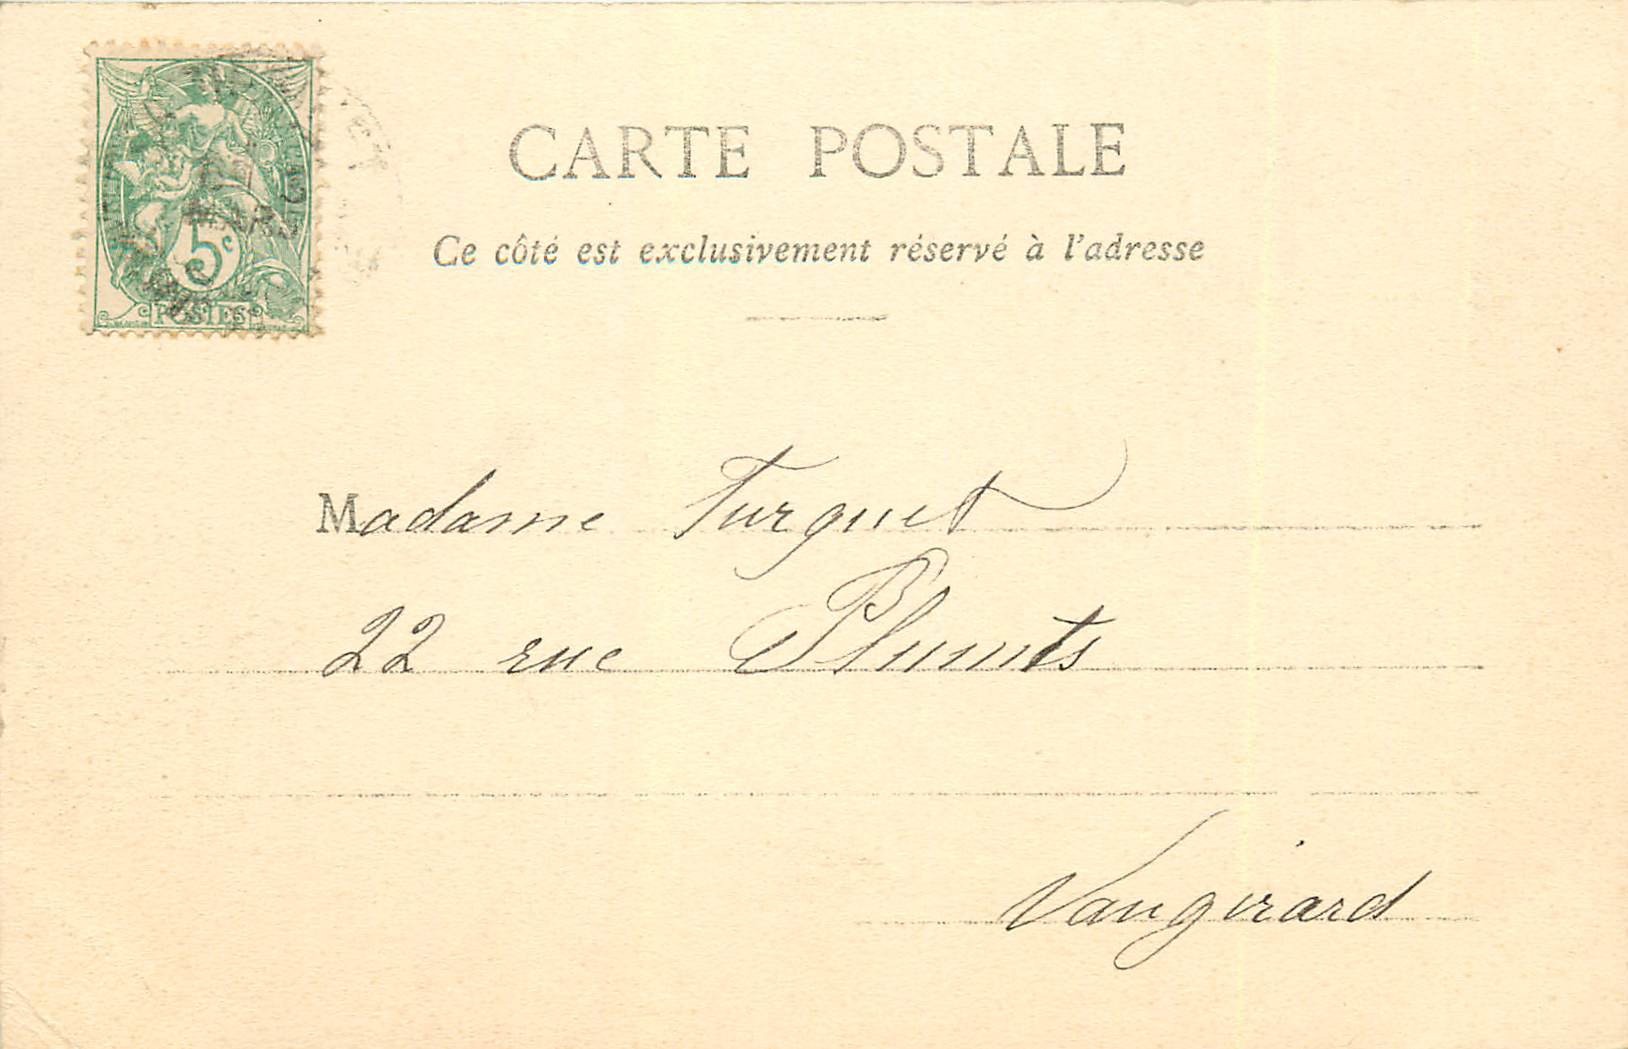 CARTE POSTALE
Ce côté est exclusivement réservé à l'adresse
5c
MARS
POSTES
Madame Turquet
22 rue Plumets
Vaugirard